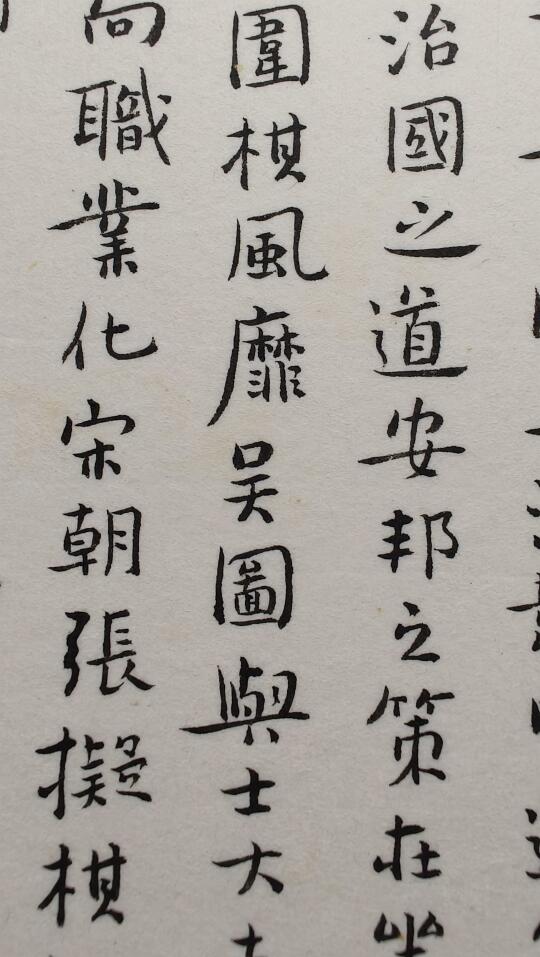 治國之道安邦之策在坐
圍棋風靡吴圖與士大
向職業化宋朝張擬棋